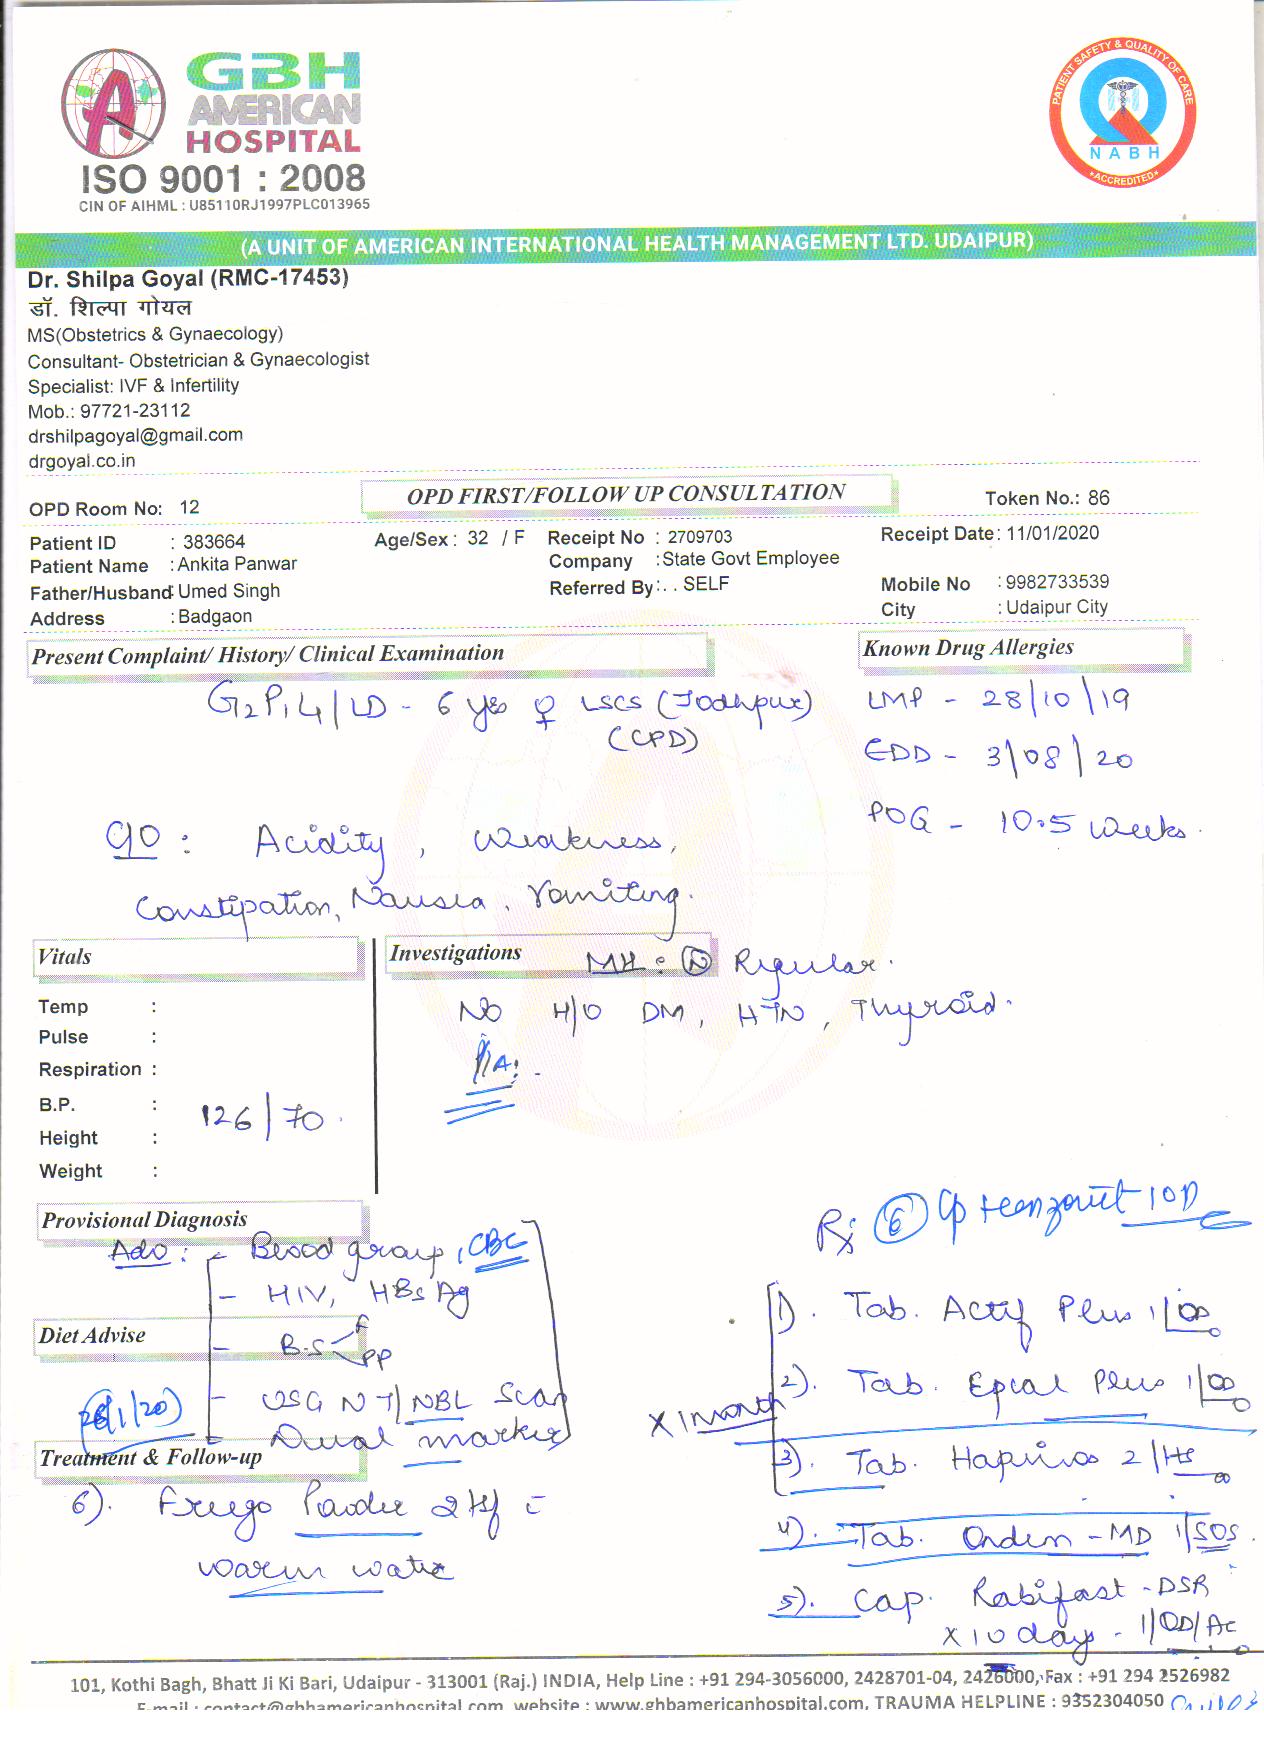 GBH
AMERICAN
HOSPITAL
ISO 9001 : 2008
CIN OF AIHML : U85110RJ1997PLC013965
PATIENT SAFETY & QUALITY OF CARE
NABH
ACCREDITED
(A UNIT OF AMERICAN INTERNATIONAL HEALTH MANAGEMENT LTD. UDAIPUR)
Dr. Shilpa Goyal (RMC-17453)
डॉ. शिल्पा गोयल
MS(Obstetrics & Gynaecology)
Consultant- Obstetrician & Gynaecologist
Specialist: IVF & Infertility
Mob.: 97721-23112
drshilpagoyal@gmail.com
drgoyal.co.in
OPD Room No: 12 OPD FIRST/FOLLOW UP CONSULTATION Token No.: 86
Patient ID : 383664 Age/Sex : 32 / F Receipt No : 2709703 Receipt Date: 11/01/2020
Patient Name : Ankita Panwar Company : State Govt Employee
Father/Husband : Umed Singh Referred By : . . SELF Mobile No : 9982733539
Address : Badgaon City : Udaipur City
Present Complaint/ History/ Clinical Examination Known Drug Allergies
G2P1L1/LD - 6 yrs ♀ LSCS (Jodhpur) LMP - 28/10/19
(CPD) EDD - 3/08/20
POG - 10.5 weeks.
C/O : Acidity, Weakness,
Constipation, Nausea, Vomiting.
Vitals Investigations MH : N Regular.
Temp :
No H/O DM, HTN, Thyroid.
Pulse :
Respiration :
P/A: -
B.P. : 126/70.
Height :
Weight :
Provisional Diagnosis Rx 6 Cp 10D
Adv : - Blood group, CBC
- HIV, HBsAg
1). Tab. Actif Plus 1/OD
Diet Advise - B.S F PP
2). Tab. Epcal Plus 1/OD
- USG NT/NBL Scan
26/1/20 X 1 month
Dual marker
Treatment & Follow-up 3). Tab. 2/HS
6). Powder 2 tsf c
warm water
4). Tab. Ondem-MD 1/SOS.
5). Cap. Rabifast-DSR
X 10 days - 1/OD/AC
101, Kothi Bagh, Bhatt Ji Ki Bari, Udaipur - 313001 (Raj.) INDIA, Help Line : +91 294-3056000, 2428701-04, 2426000, Fax : +91 294 2526982
E-mail : contact@gbhamericanhospital.com, website : www.gbhamericanhospital.com, TRAUMA HELPLINE : 9352304050